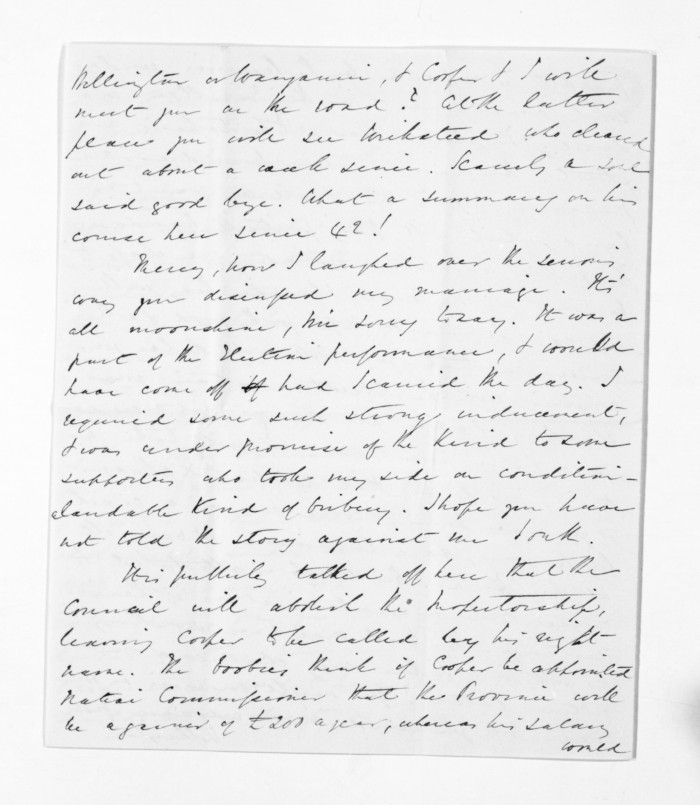 Wellington or Wanganui, & Cooper & I will
meet you on the road? At the latter
place you will see Wicksteed who cleared
out about a week since. Scarcely a soul
said good bye. What a summary on his
course here since 42!
Mercy, how I laughed over the serious
way you discussed my marriage. It's
all moonshine, I'm sorry to say. It was a
part of the Election performance, & would
have come off had I carried the day. I
required some such strong inducement,
& was under promise of the kind to some
supporters who took my side on condition -
laudable kind of bribery. I hope you have
not told the story against me South.
It is publicly talked of here that the
Council will abolish the Inspectorship,
leaving Cooper to be called by his right
name. The boobies think if Cooper be appointed
Native Commissioner that the Province will
be a gainer of £200 a year, whereas his salary
would